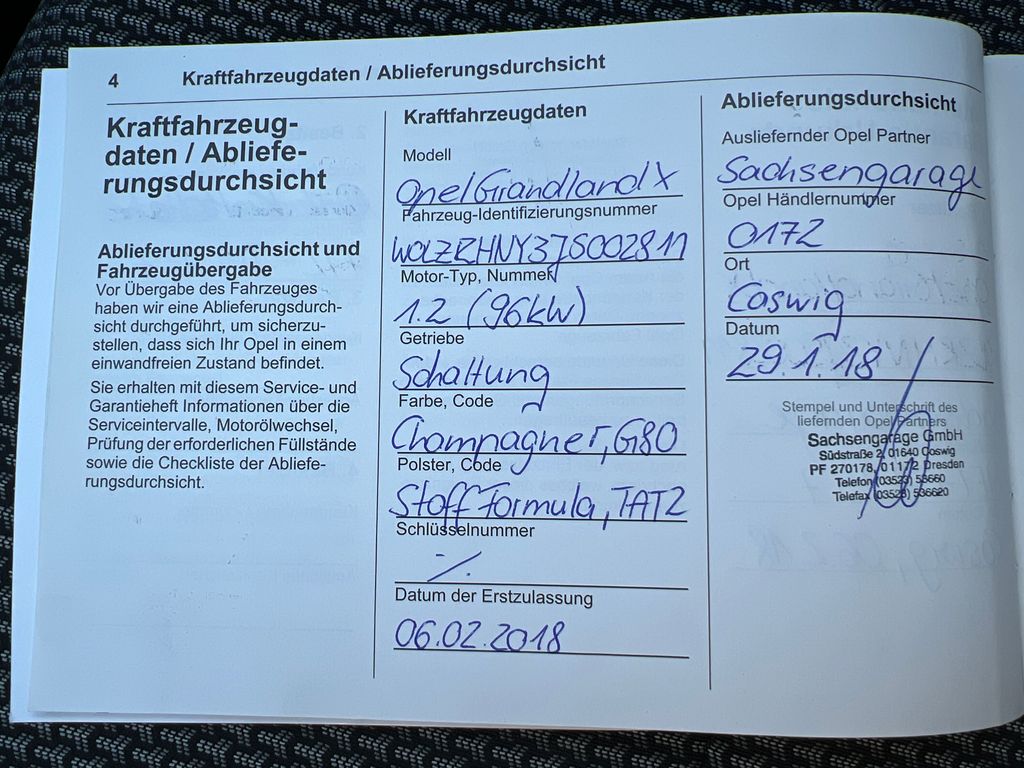 4 Kraftfahrzeugdaten / Ablieferungsdurchsicht
Kraftfahrzeug-
daten / Abliefe-
rungsdurchsicht
Ablieferungsdurchsicht und
Fahrzeugübergabe
Vor Übergabe des Fahrzeuges
haben wir eine Ablieferungsdurch-
sicht durchgeführt, um sicherzu-
stellen, dass sich Ihr Opel in einem
einwandfreien Zustand befindet.
Sie erhalten mit diesem Service- und
Garantieheft Informationen über die
Serviceintervalle, Motorölwechsel,
Prüfung der erforderlichen Füllstände
sowie die Checkliste der Abliefe-
rungsdurchsicht.
Kraftfahrzeugdaten
Modell
Opel Grandland X
Fahrzeug-Identifizierungsnummer
W0LZRHNY3JS002811
Motor-Typ, Nummer
1.2 (96kW)
Getriebe
Schaltung
Farbe, Code
Champagner, G80
Polster, Code
Stoff Formula, TAT2
Schlüsselnummer
⁒
Datum der Erstzulassung
06.02.2018
Ablieferungsdurchsicht
Ausliefernder Opel Partner
Sachsengarage
Opel Händlernummer
0172
Ort
Coswig
Datum
29.1.18
Stempel und Unterschrift des
liefernden Opel Partners
Sachsengarage GmbH
Südstraße 2, 01640 Coswig
PF 270178, 01172 Dresden
Telefon (03523) 53660
Telefax (03523) 536620